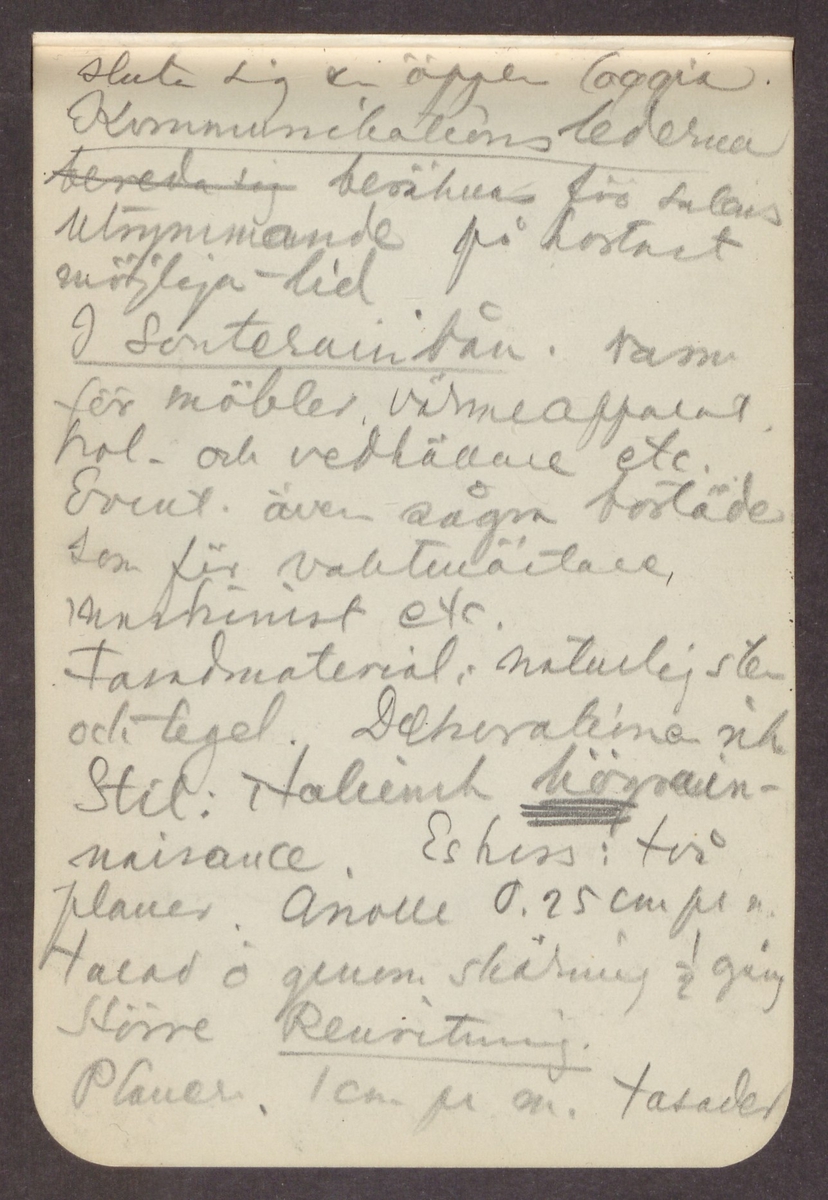 sluta sig en öppen loggia.
Kommunikationslederna
bereda sig beräknas för salens
utrymmande på kortast
möjliga tid
I Souterainvån. rum
för möbler, värmeapparat,
kol- och vedkällare etc.
Event. även några bostäder
som för vaktmästare,
maskinist etc.
Fasadmaterial: naturlig sten
och tegel. Dekorationen rik
Stil: Italiensk högrenä-
naisance. Eskiss: två
planer. Skala 0.25 cm pr m.
Facad o genomskärning ½ gång
större Renritning.
Planer. 1 cm pr m. Fasader